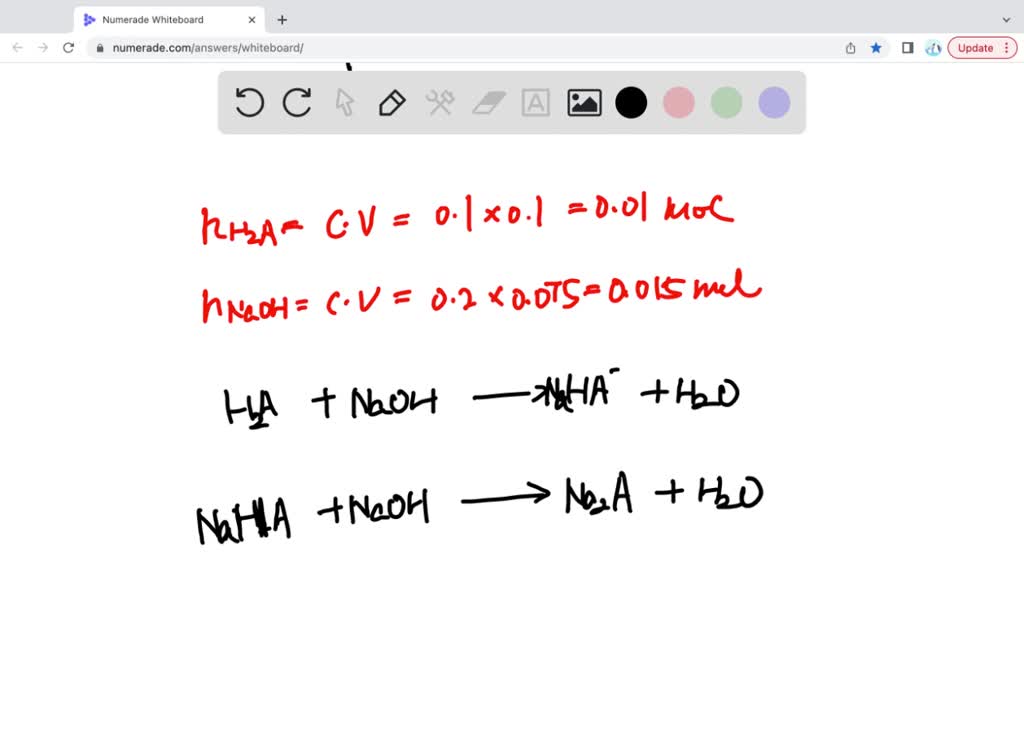 Numerade Whiteboard
numerade.com/answers/whiteboard/
Update
A
nH2A = C.V = 0.1 × 0.1 = 0.01 mol
nNaOH = C.V = 0.2 × 0.075 = 0.015 mol
H2A + NaOH → NaHA⁻ + H2O
NaHA + NaOH → Na2A + H2O